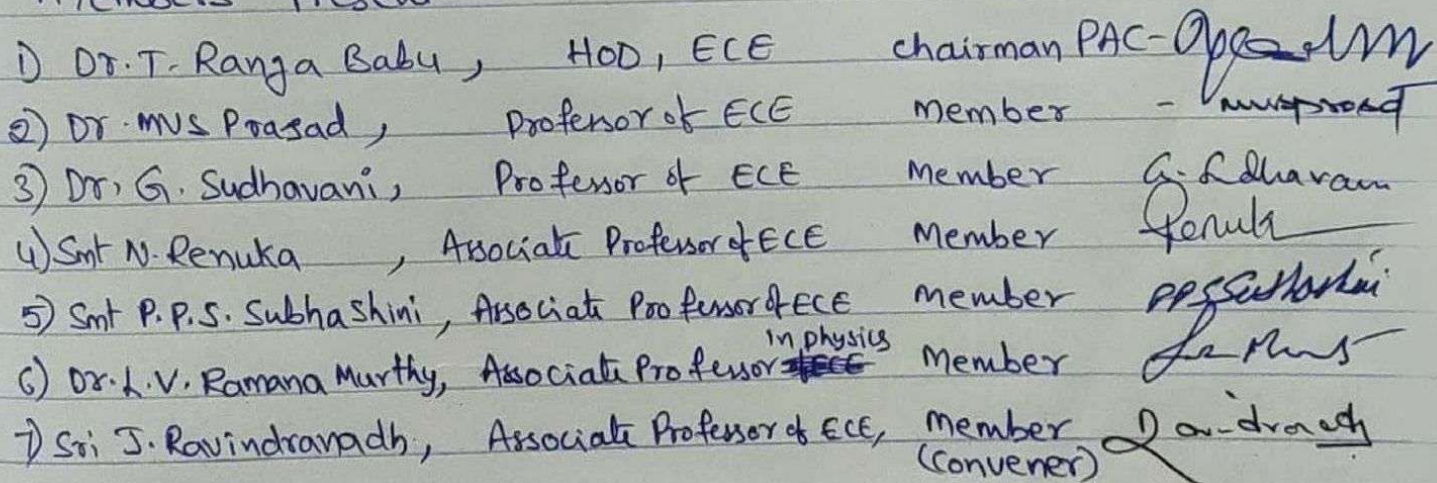 Members Present
1) Dr. T. Ranga Babu, HOD, ECE chairman PAC -
2) Dr. MVS Prasad, Professor of ECE Member - mvsprasad
3) Dr. G. Sudhavani, Professor of ECE Member
4) Smt N. Renuka, Associate Professor of ECE Member Renuka
5) Smt P.P.S. Subhashini, Associate Professor of ECE Member PPSSubhashini
in physics
6) Dr. L.V. Ramana Murthy, Associate Professor Member
7) Sri J. Ravindranadh, Associate Professor of ECE, Member Ravindranadh
(Convener)